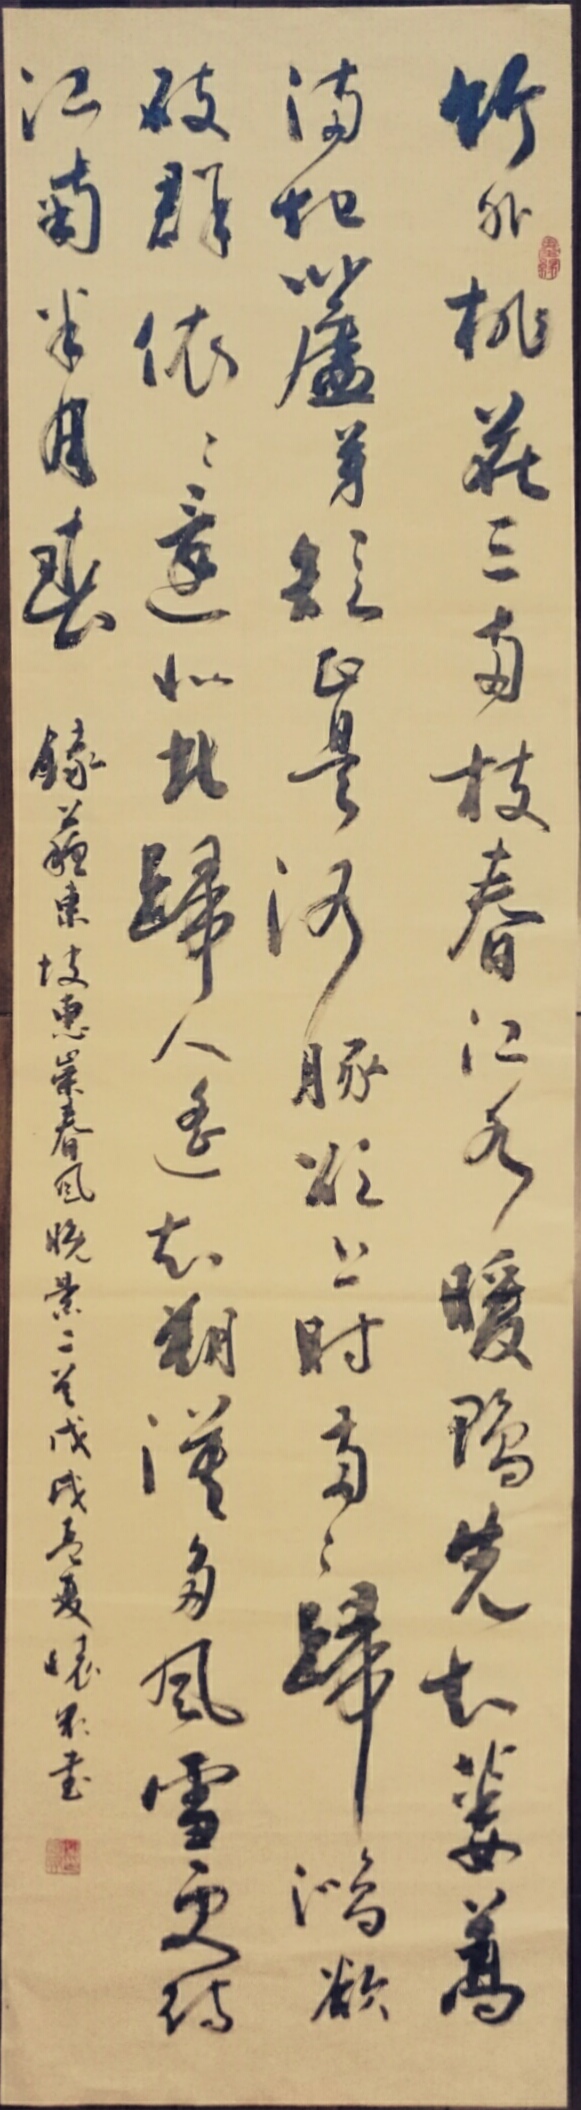 竹外桃花三两枝春江水暖鸭先知蒌蒿
满地蘆芽短正是河豚欲上时两々歸鸿欲
破群依々還似北歸人遥知朔漠多风雪更待
江南半月春
録蘇東坡惠崇春风晚景二首戊戌孟夏懐书